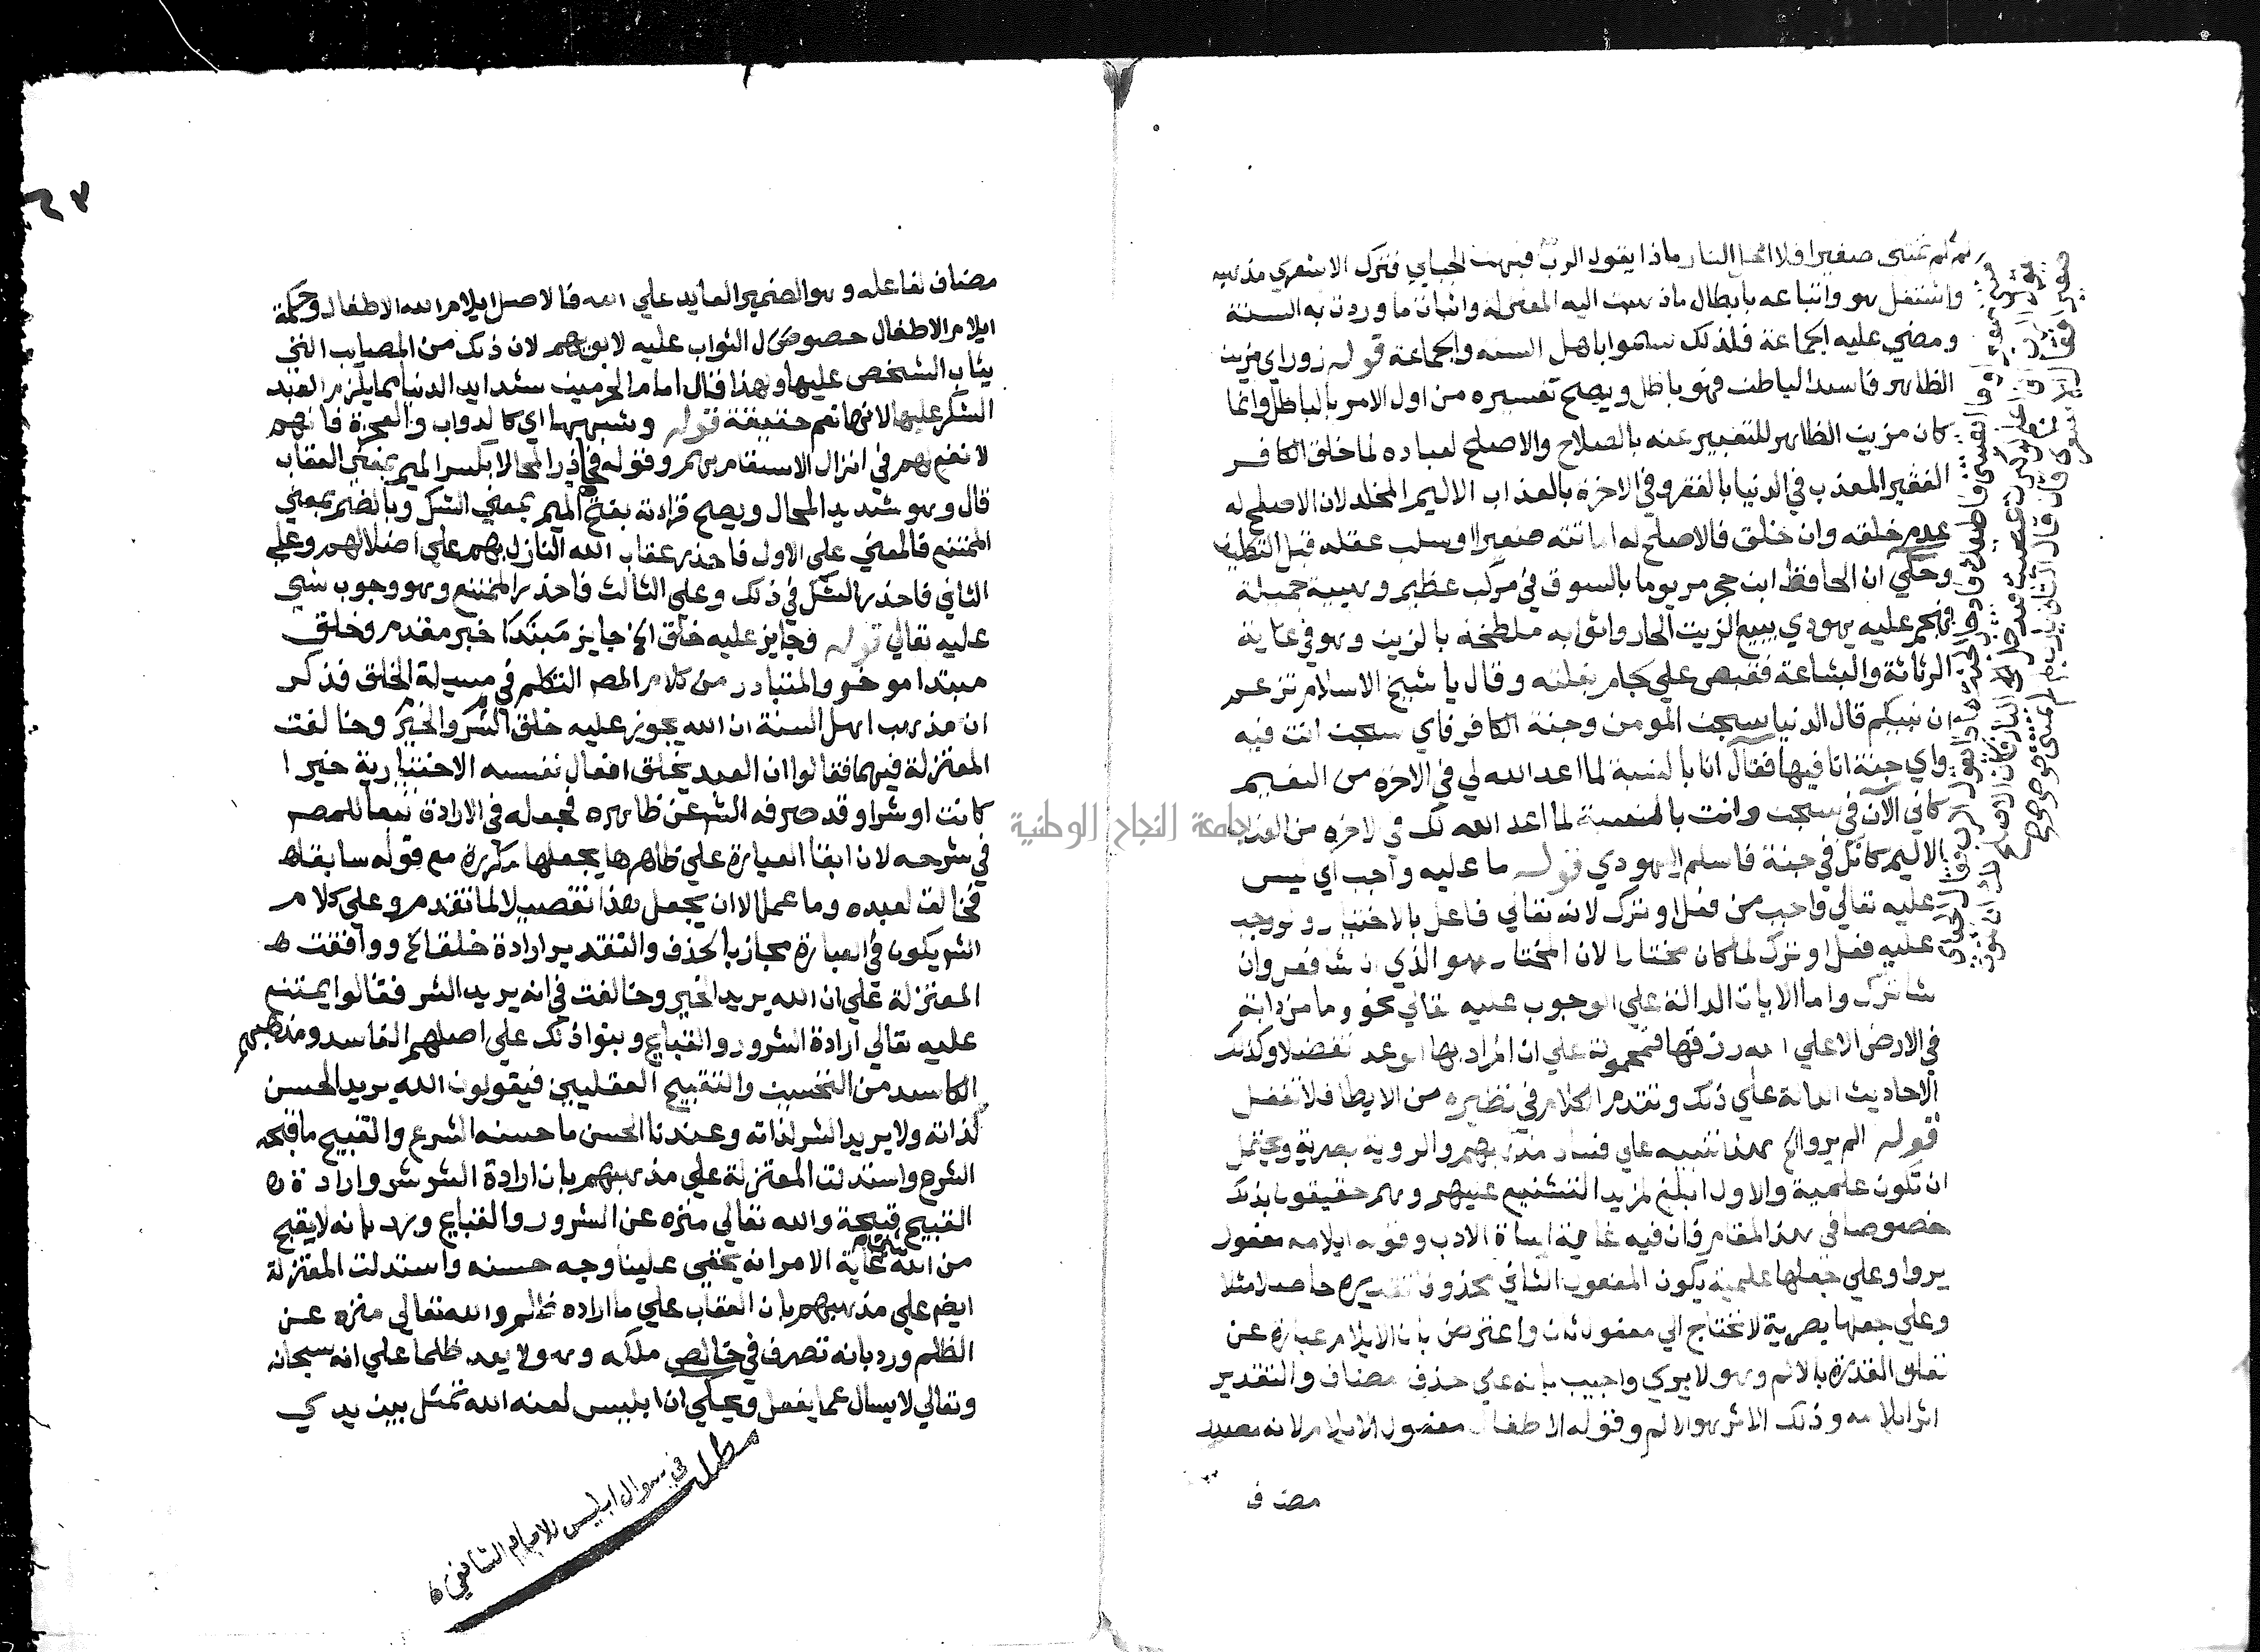 لم لم تمتني صغيرا فلا ادخل النار ماذا يقول الرب فبهت الجباي فترك الاشعري مذهبه
واشتغل هو واتباعه بابطال ما ذهبت اليه المعتزلة واثبات ما وردت به السنة
ومضي عليه الجماعة فلذلك سموا باهل السنه والجماعة قوله زور اي مزين
الظاهر فاسد الباطن فهو باطل ويصح تفسيره من اول الامر بالباطل وانما
كان مزين الظاهر للتعبير عنه بالصلاح والاصلح لعباده لما خلق الكافر
الفقير المعذب في الدنيا بالفقر وفي الاخرة بالعذاب الاليم المخلد لان الاصلح له
عدم خلقه وان خلق فالاصلح له اماتته صغيرا او سلب عقله قبل التكليف
وحكي ان الحافظ ابن حجر مر يوما بالسوق في مركب عظيم وهيبة جميلة
فهجم عليه يهودي يبيع الزيت الحار واثوابه ملطخة بالزيت وهو في غاية
الرثاثة والبشاعة فقبض علي لجام بغلته وقال يا شيخ الاسلام تزعم
ان نبيكم قال الدنيا سجن المومن وجنة الكافر فاي سجن انت فيه
واي جنة انا فيها فقال انا بالنسبة لما اعد الله لي في الاخرة من النعيم
كاني الآن في سجن وانت بالنسبة لما اعد الله لك في الاخره من العذاب
الاليم كانك في جنة فاسلم اليهودي قوله ما عليه واجب اي ليس
عليه تعالي واجب من فعل او ترك لانه تعالي فاعل بالاختيار ولو وجب
عليه فعل او ترك لما كان مختارا لان المختار هو الذي ان شا فعل وان
شا ترك واما الايات الدالة علي الوجوب عليه تعالي نحو وما من دابة
في الارض الا علي الله رزقها فمحمولة علي ان المراد بها الوعد تفضلا وكذلك
الاحاديث الدالة علي ذلك وتقدم الكلام في نظيره من الايطا فلا تغفل
قوله الم يروا الخ هذا تنبيه علي فساد مذهبهم والروية بصرية ويحتمل
ان تكون علمية والاول ابلغ لمزيد التشنيع عليهم وهم حقيقون بذلك
خصوصا في هذا المقام فان فيه غاية اساة الادب وقوله ايلامه مفعول
يروا وعلي جعلها علمية يكون المفعول الثاني محذوفا تقديره حاصلا مثلا
وعلي جعلها بصرية لا تحتاج الي مفعول ثان واعترض بان الايلام عبارة عن
تعلق القدرة بالالم وهو لا يري واجيب بانه علي حذف مضاف والتقدير
اثر ايلامه وذلك الاثر هو الالم وقوله الاطفال مفعول الايلام لانه مصدر
مضاف
مضاف لفاعله وهو الضمير العايد علي الله فالاصل ايلام الله الاطفال وحكمة
ايلام الاطفال حصول الثواب عليه لابويهم لان ذلك من المصايب التي
يثاب الشخص عليها ولهذا قال امام الحرمين شدايد الدنيا مما يلزم العبد
الشكر عليها لانها نعم حقيقة قوله وشبهها اي كالدواب والعجزة فانهم
لا نفع لهم في انزال الاسقام بهم وقوله فحاذر المحالا بكسر الميم بمعني العقاب
قال وهو شديد المحال ويصح قراته بفتح الميم بمعني الشك وبالضم بمعني
الممتنع فالمعني علي الاول فاحذر عقاب الله النازل بهم علي اضلالهم وعلي
الثاني فاحذر الشك في ذلك وعلي الثالث فاحذر الممتنع وهو وجوب شي
عليه تعالي قوله وجايز عليه خلق الخ جايز خبر مقدم وخلق
مبتدا موخر والمتبادر من كلام المص التكلم في مسيلة الخلق فذكر
ان مذهب اهل السنة ان الله يجوز عليه خلق الشر والخير وخالفت
المعتزلة فيهما فقالوا ان العبد يخلق افعال نفسه الاختيارية خيرا
كانت او شرا وقد صرفه الش عن ظاهره فجعله في الارادة تبعا للمص
في شرحه لان ابقا العبارة علي ظاهرها يجعلها مكررة مع قوله سابقا
فخالق لعبده وما عمل الا ان يجعل هذا تفصيلا لما تقدم وعلي كلام
الش يكون في العبارة مجاز بالحذف والتقدير ارادة خلق الخ ووافقت
المعتزلة علي ان الله يريد الخير وخالفت في انه يريد الشر فقالوا يمتنع
عليه تعالي ارادة الشرور والقبايح وبنوا ذلك علي اصلهم الفاسد ومذهبهم
الكاسد من التحسين والتقبيح العقليين فيقولون الله يريد الحسن
لذاته ولا يريد الشر لذاته وعندنا الحسن ما حسنه الشرع والقبيح ما قبحه
الشرع واستدلت المعتزلة علي مذهبهم بان ارادة الشر شر وارادة
القبيح قبيحة والله تعالي منزه عن الشرور والقبايح ورد بانه لا يقبح
من الله شي غاية الامر انه يخفي علينا وجه حسنه واستدلت المعتزلة
ايضا علي مذهبهم بان العقاب علي ما اراده ظلم والله تعالي منزه عن
الظلم ورد بانه تصرف في خالص ملكه وهو لا يعد ظلما علي انه سبحانه
وتعالي لا يسال عما يفعل ويحكي ان ابليس لعنه الله تمثل بين يدي
مطلب
في سوال ابليس للامام الشافعي
جامعة النجاح الوطنية